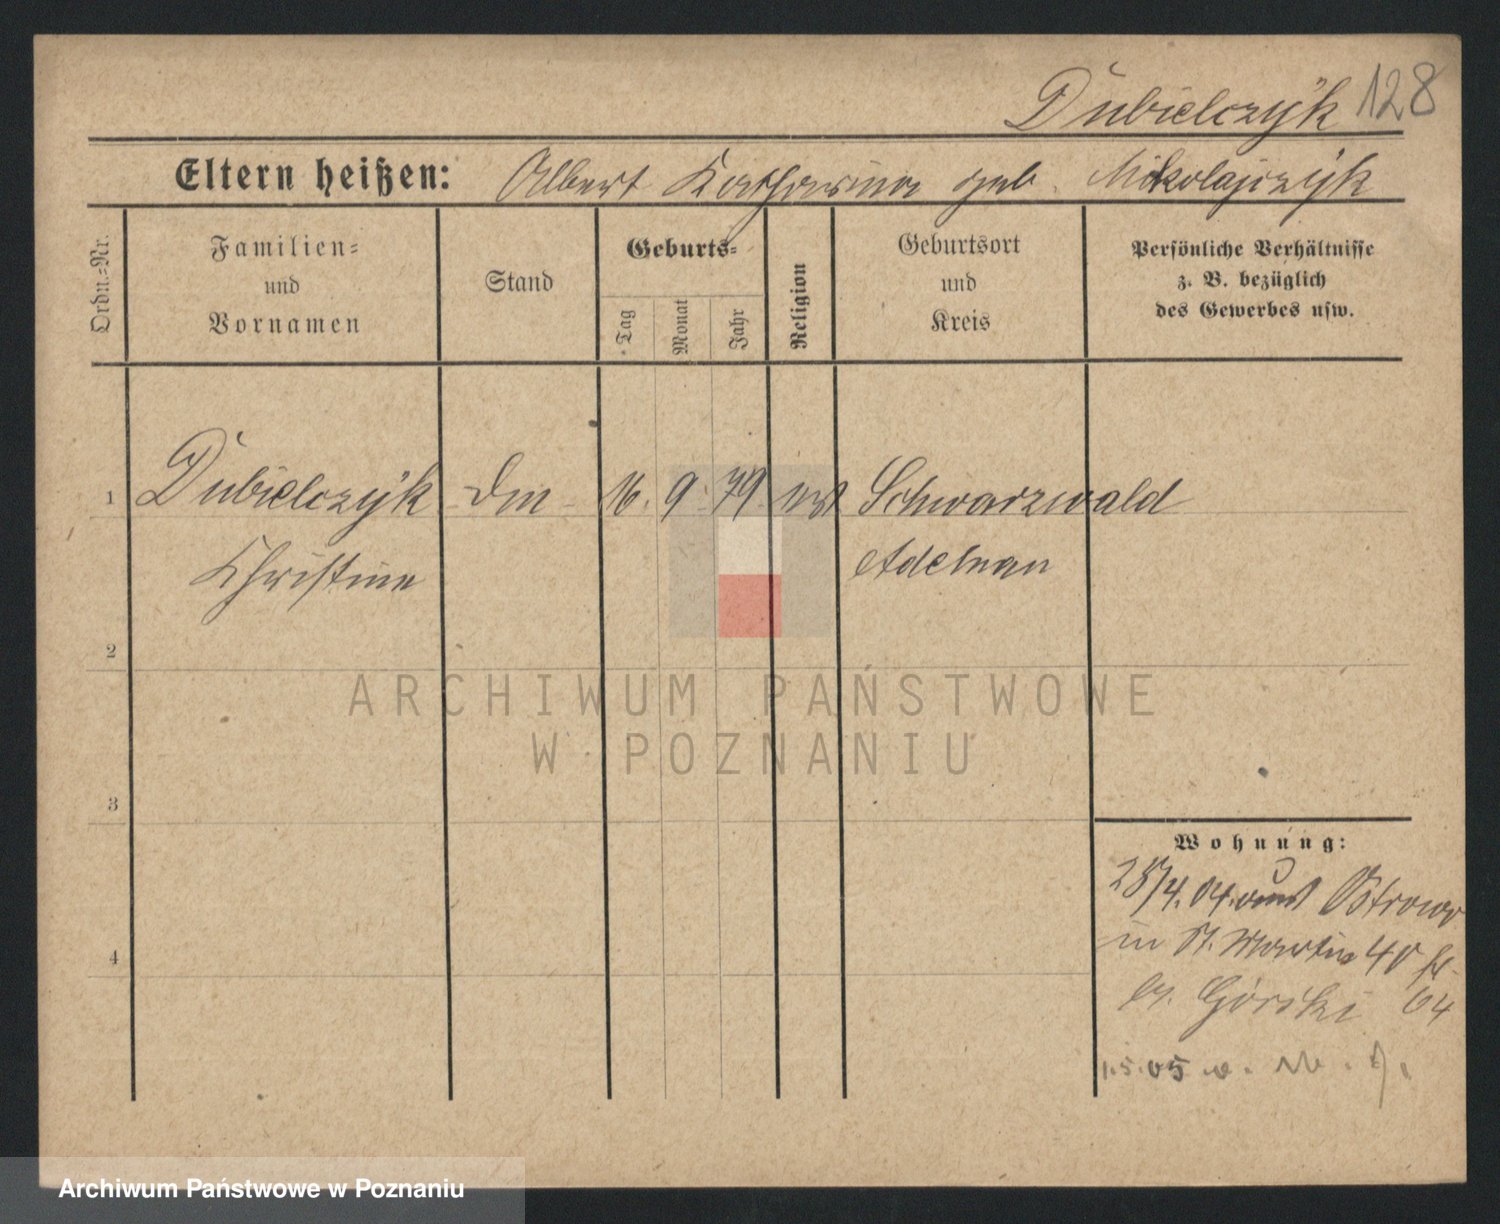 Dubielczyk 128
Eltern heißen: Albert Katharina geb. Mikolajczyk
Ordn.=Nr.
Familien=
und
Vornamen
Stand
Geburts=
Tag
Monat
Jahr
Religion
Geburtsort
und
Kreis
Persönliche Verhältnisse
z. B. bezüglich
des Gewerbes usw.
1 Dubielczyk 16. 9. 79. Schwarzwald
Christine Adelnau
2
3
4
ARCHIWUM PAŃSTWOWE
W POZNANIU
Wohnung:
25/4. 04. aus Ostrowo
in St. Martin 40
Górski 04
1.5.05
Archiwum Państwowe w Poznaniu